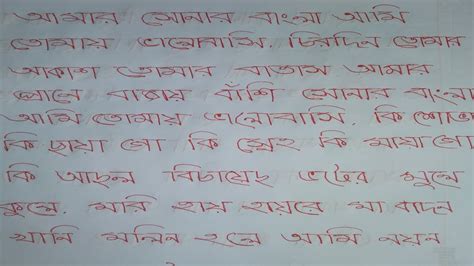 আমার সোনার বাংলা আমি
তোমায় ভালোবাসি. চিরদিন তোমার
আকাশ তোমার বাতাস আমার
প্রানে বাজায় বাঁশি সোনার বাংলা
আমি তোমায় ভালোবাসি. কি শোভা
কি ছায়া গো কি স্নেহ কি মায়া গো
কি আচল বিচায়েছ বটের মুলে
কুলে. মরি হায় হায়রে মা বদন
খানি মলিন হলে আমি নয়ন